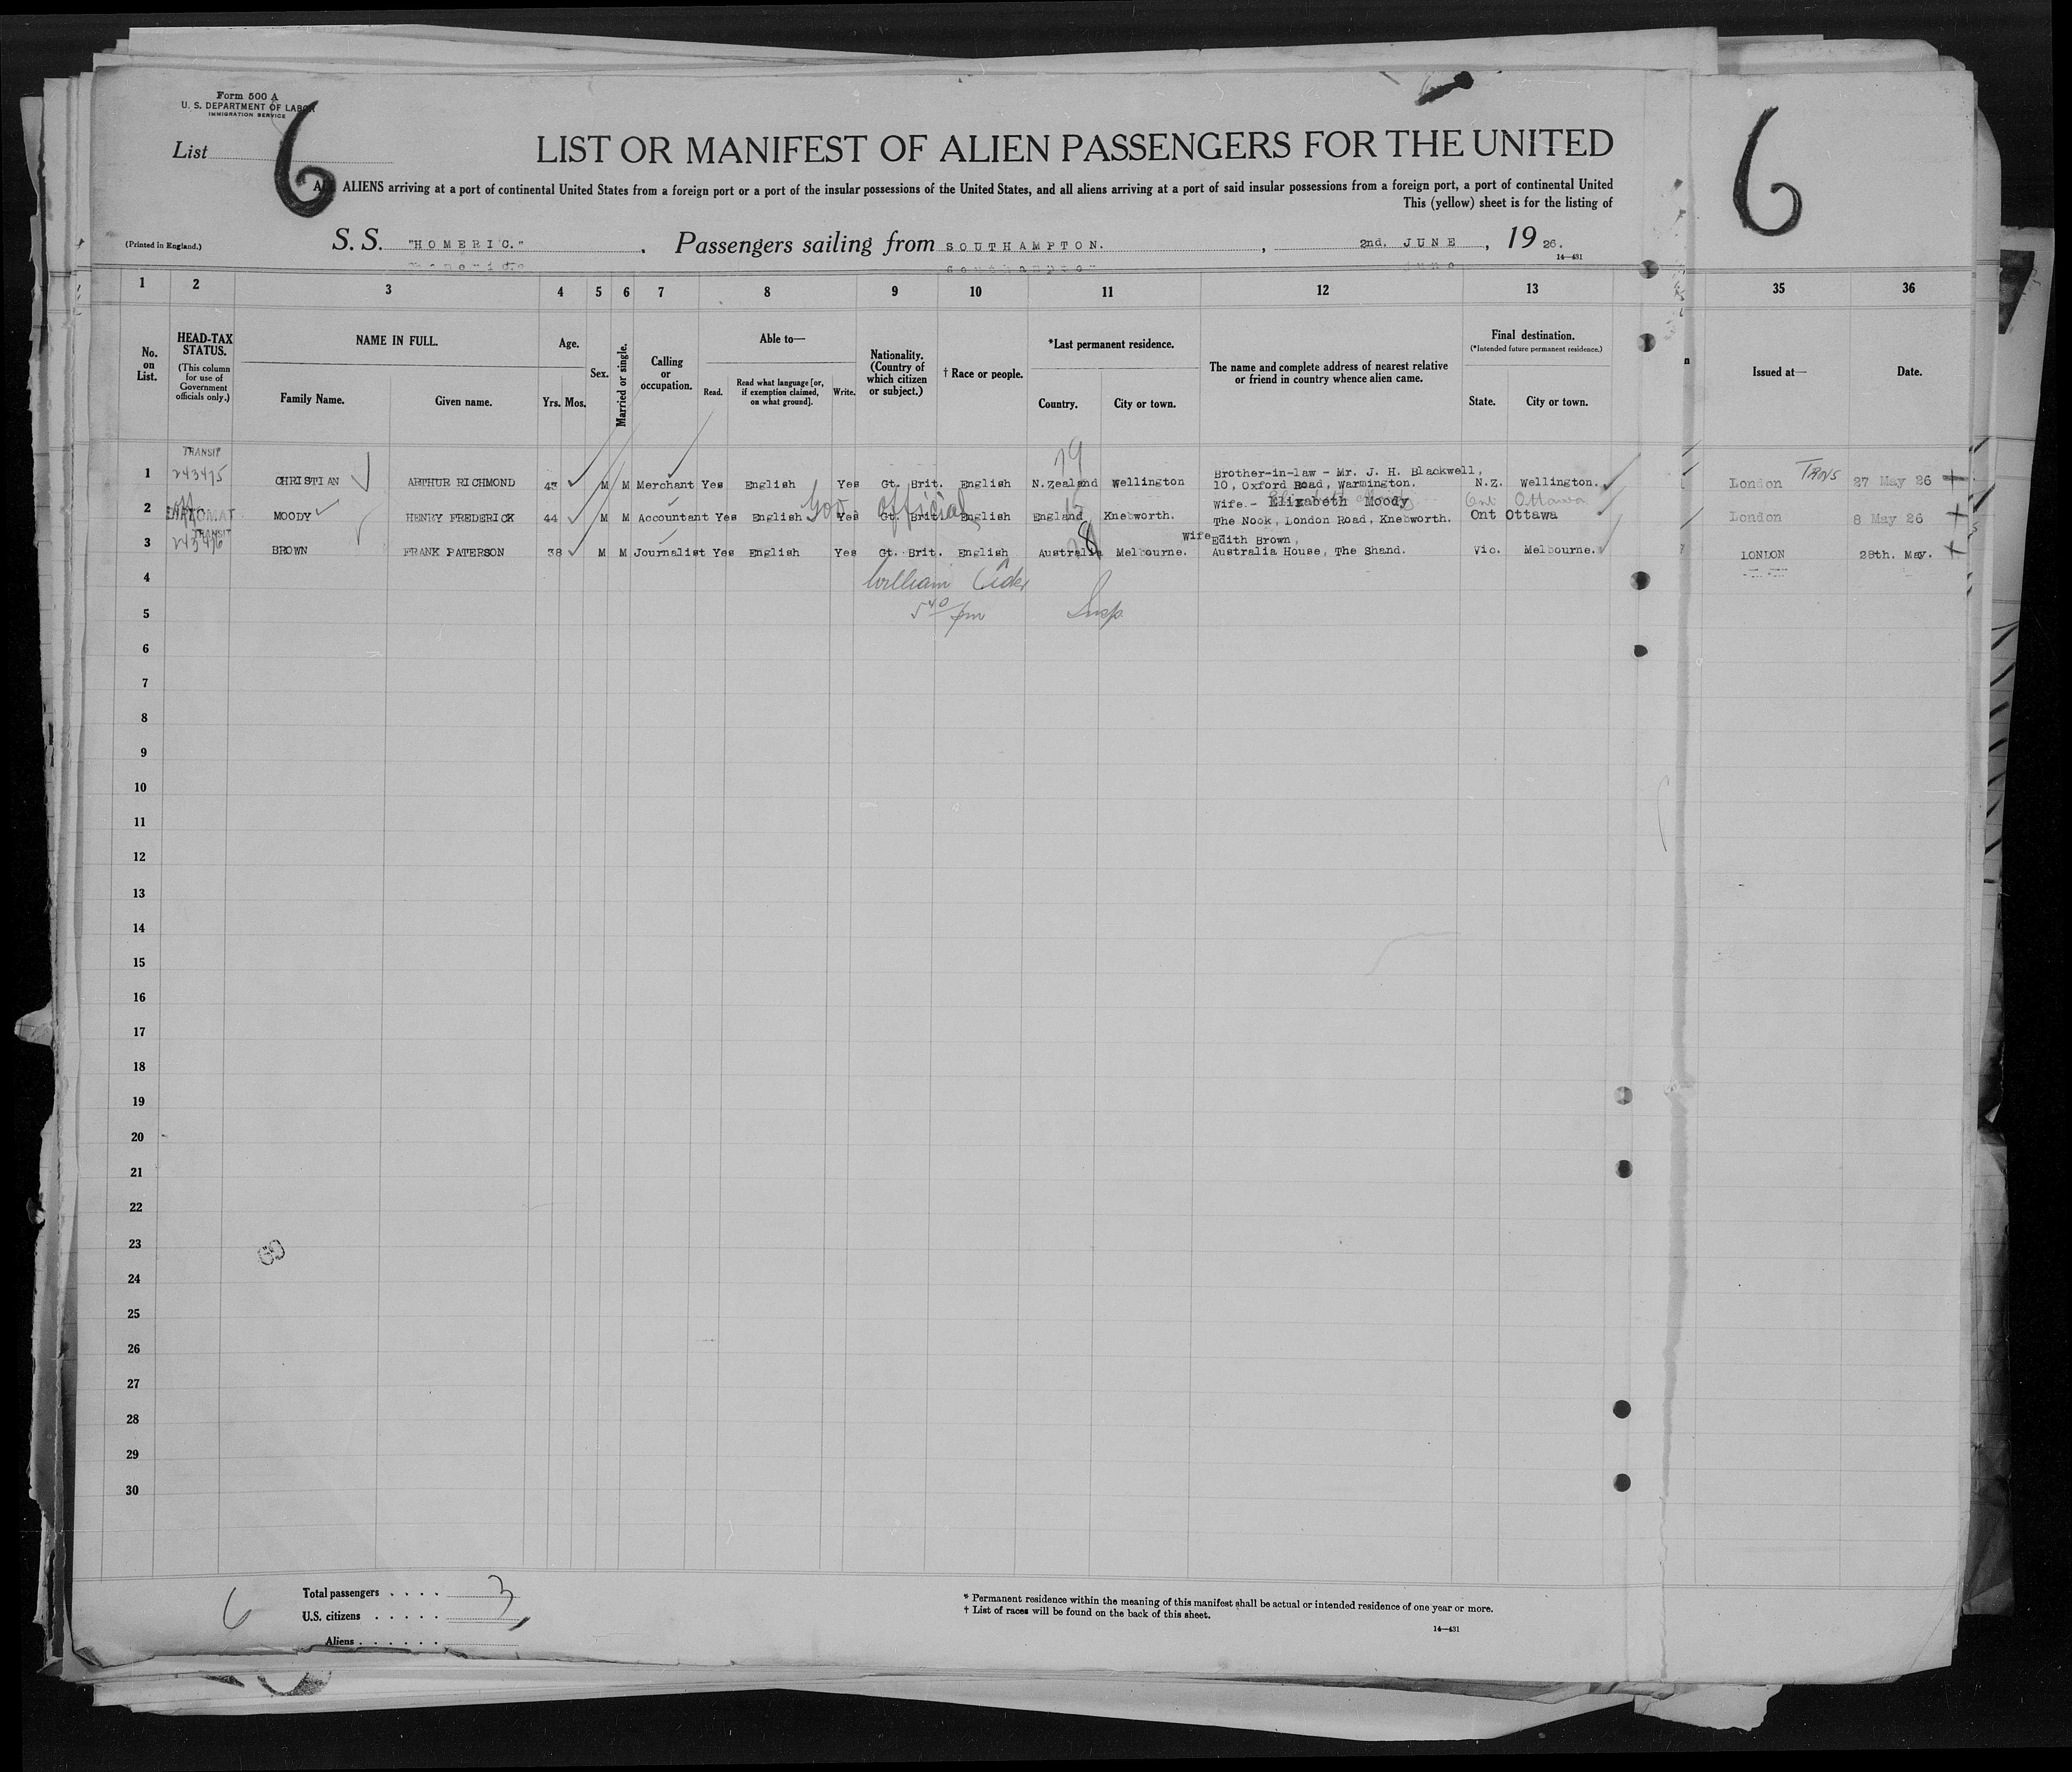 Form 500 A
U. S. DEPARTMENT OF LABOR
IMMIGRATION SERVICE
List 6
6
LIST OR MANIFEST OF ALIEN PASSENGERS FOR THE UNITED
ALL ALIENS arriving at a port of continental United States from a foreign port or a port of the insular possessions of the United States, and all aliens arriving at a port of said insular possessions from a foreign port, a port of continental United
This (yellow) sheet is for the listing of
(Printed in England.)
S. S. "HOMERIC." , Passengers sailing from SOUTHAMPTON. , 2nd. JUNE , 19 26.
14—431
1 2 3 4 5 6 7 8 9 10 11 12 13 35 36
No. on List.
HEAD-TAX STATUS. (This column for use of Government officials only.)
NAME IN FULL.
Family Name. Given name.
Age.
Yrs. Mos.
Sex.
Married or single.
Calling or occupation.
Able to—
Read. Read what language [or, if exemption claimed, on what ground]. Write.
Nationality. (Country of which citizen or subject.)
† Race or people.
*Last permanent residence.
Country. City or town.
The name and complete address of nearest relative or friend in country whence alien came.
Final destination.
(*Intended future permanent residence.)
State. City or town.
Issued at—
Date.
TRANSIT
19
1 243475 CHRISTIAN ARTHUR RICHMOND 43 M M Merchant Yes English Yes Gt. Brit. English N. Zealand Wellington Brother-in-law - Mr. J. H. Blackwell, 10, Oxford Road, Warmington. N.Z. Wellington. London Trans 27 May 26
2 DIPLOMAT MOODY HENRY FREDERICK 44 M M Accountant Yes English Yes Gt. Brit. English England Knebworth. Wife.- Elizabeth Moody The Nook, London Road, Knebworth. Ont Ottawa London 8 May 26
Gov official
Ont Ottawa
TRANSIT
3 243476 BROWN FRANK PATERSON 38 M M Journalist Yes English Yes Gt. Brit. English Australia Melbourne. Wife Edith Brown, Australia House, The Shand. Vic. Melbourne. LONDON 28th. May.
8
4 William
5 5 40 pm Insp
6
7
8
9
10
11
12
13
14
15
16
17
18
19
20
21
22
23
24
25
26
27
28
29
30
6
Total passengers . . . . 3
U.S. citizens . . . . .
Aliens . . . . . .
* Permanent residence within the meaning of this manifest shall be actual or intended residence of one year or more.
† List of races will be found on the back of this sheet.
14—431